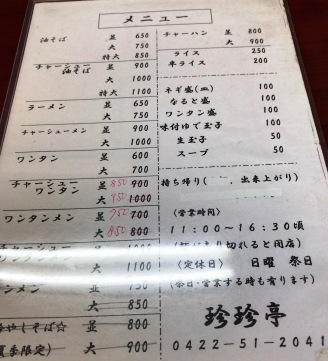 メニュー
油そば 並 650
大 750
特大 850
チャーシュー油そば 並 900
大 1000
特大 1100
ラーメン 並 650
大 750
チャーシューメン 並 900
大 1000
ワンタン 並 600
大 700
チャーシューワンタン 並 850 900
大 950 1000
ワンタンメン 並 750 700
大 850 800
チャーシュー 並 1000
大 1100
ンメン 並 750
大 850
やしそば☆ 並 800
夏季限定) 大 900
チャーハン 並 800
大 900
ライス 250
半ライス 200
ネギ盛(皿) 100
なると盛 100
ワンタン盛 100
味付ゆで玉子 100
生玉子 50
スープ 50
持ち帰り( 、出来上がり)
(営業時間)
11:00~16:30頃
切れると閉店)
(定休日) 日曜 祭日
(祭日・営業する時も有ります)
珍珍亭
0422-51-2041